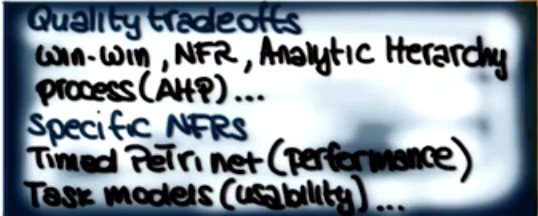 Quality tradeoffs
Win-Win, NFR, Analytic Hierarchy
process (AHP)...
Specific NFRS
Timed Petri net (performance)
Task models (usability)...